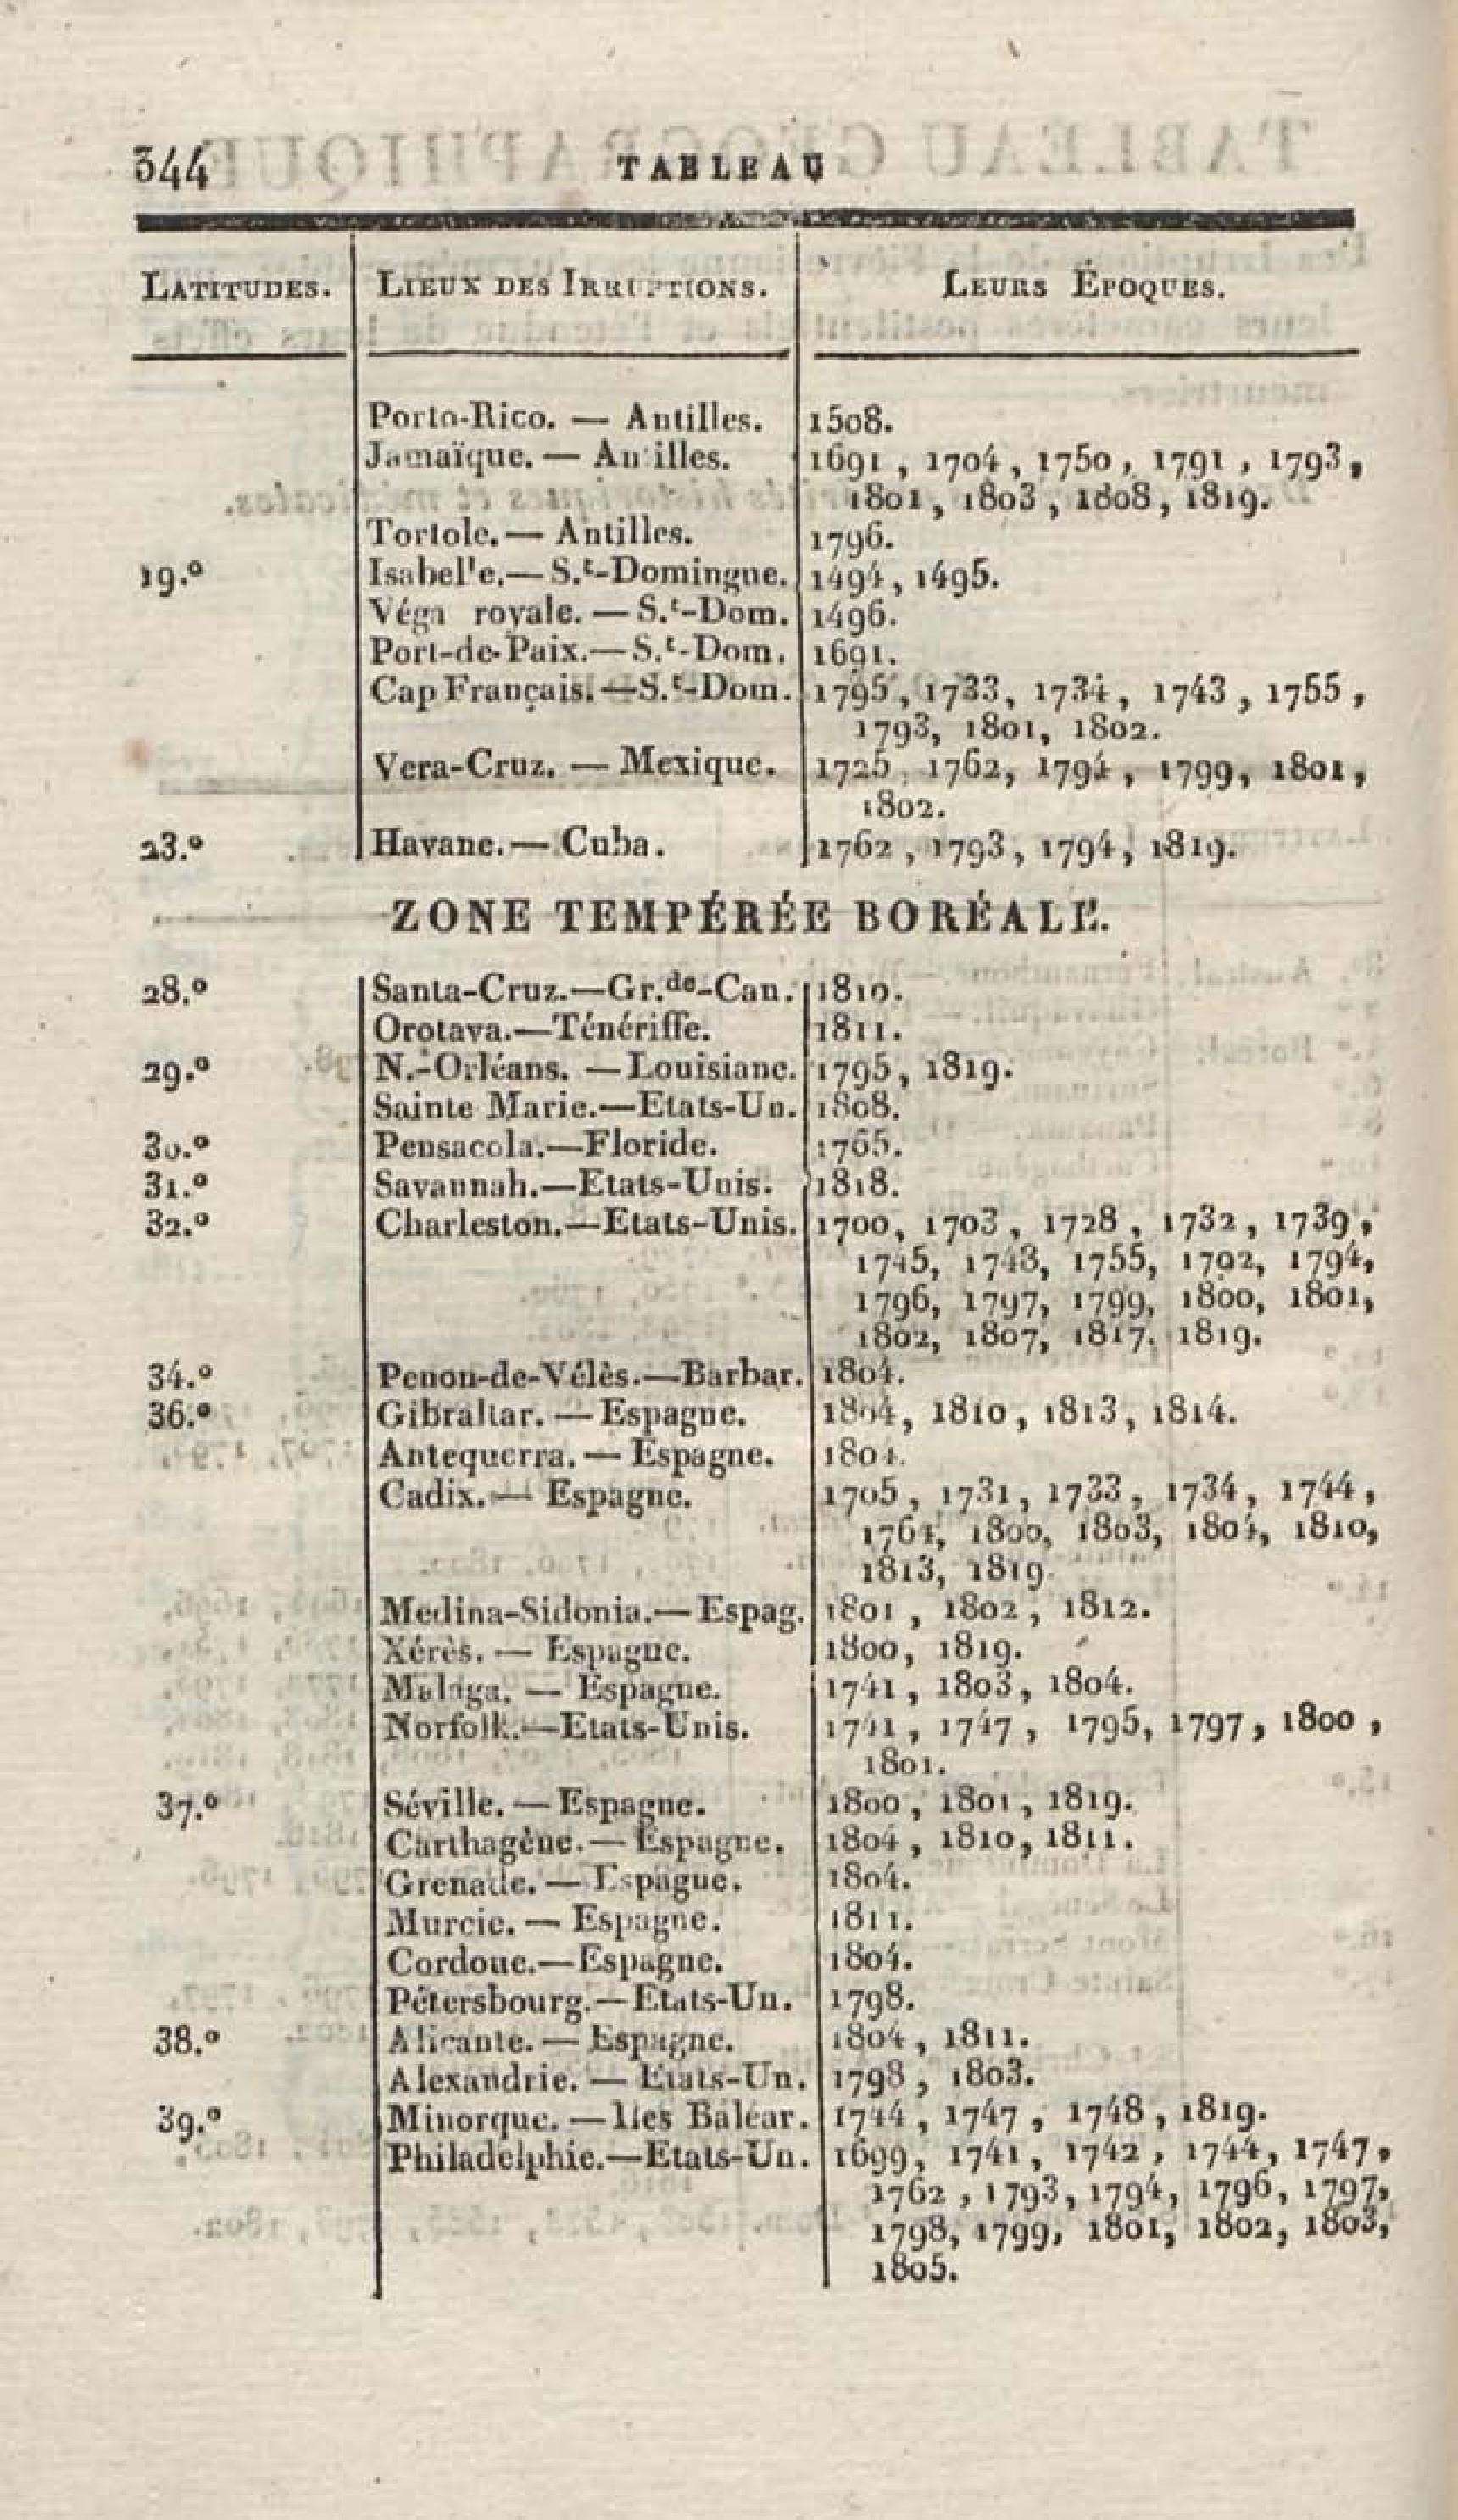 344 TABLEAU
LATITUDES. LIEUX DES IRRUPTIONS. LEURS ÉPOQUES.
Porto-Rico. — Antilles. 1508.
Jamaïque. — Antilles. 1691, 1704, 1750, 1791, 1793,
1801, 1803, 1808, 1819.
Tortole. — Antilles. 1796.
19.º Isabelle. — S.t-Domingue. 1494, 1495.
Véga royale. — S.t-Dom. 1496.
Port-de-Paix. — S.t-Dom. 1691.
Cap Français. — S.t-Dom. 1795, 1733, 1734, 1743, 1755,
1793, 1801, 1802.
Vera-Cruz. — Mexique. 1725, 1762, 1794, 1799, 1801,
1802.
23.º Havane. — Cuba. 1762, 1793, 1794, 1819.
ZONE TEMPÉRÉE BORÉALE.
28.º Santa-Cruz. — Gr.de-Can. 1810.
Orotava. — Ténériffe. 1811.
29.º N.-Orléans. — Louisiane. 1795, 1819.
Sainte Marie. — Etats-Un. 1808.
30.º Pensacola. — Floride. 1765.
31.º Savannah. — Etats-Unis. 1818.
32.º Charleston. — Etats-Unis. 1700, 1703, 1728, 1732, 1739,
1745, 1748, 1755, 1792, 1794,
1796, 1797, 1799, 1800, 1801,
1802, 1807, 1817, 1819.
34.º Penon-de-Vélès. — Barbar. 1804.
36.º Gibraltar. — Espagne. 1804, 1810, 1813, 1814.
Antequerra. — Espagne. 1804.
Cadix. — Espagne. 1705, 1731, 1733, 1734, 1744,
1764, 1800, 1803, 1804, 1810,
1813, 1819.
Medina-Sidonia. — Espag. 1801, 1802, 1812.
Xérès. — Espagne. 1800, 1819.
Malaga. — Espagne. 1741, 1803, 1804.
Norfolk. — Etats-Unis. 1741, 1747, 1795, 1797, 1800,
1801.
37.º Séville. — Espagne. 1800, 1801, 1819.
Carthagène. — Espagne. 1804, 1810, 1811.
Grenade. — Espagne. 1804.
Murcie. — Espagne. 1811.
Cordoue. — Espagne. 1804.
Pétersbourg. — Etats-Un. 1798.
38.º Alicante. — Espagne. 1804, 1811.
Alexandrie. — Etats-Un. 1798, 1803.
39.º Minorque. — Iles Baléar. 1744, 1747, 1748, 1819.
Philadelphie. — Etats-Un. 1699, 1741, 1742, 1744, 1747,
1762, 1793, 1794, 1796, 1797,
1798, 1799, 1801, 1802, 1803,
1805.